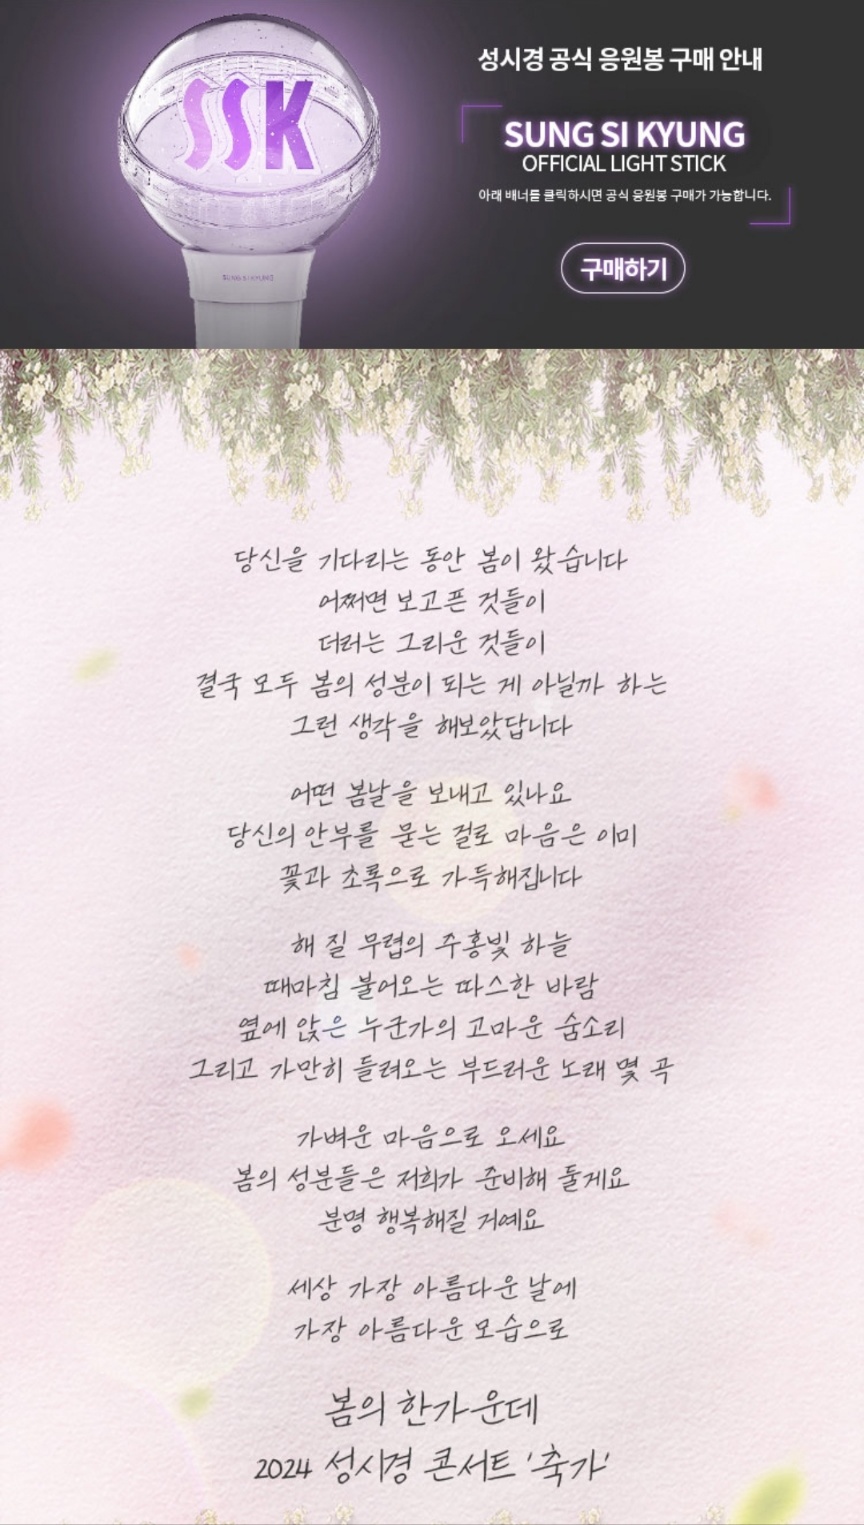 SSK
SUNG SI KYUNG
성시경 공식 응원봉 구매 안내
SUNG SI KYUNG
OFFICIAL LIGHT STICK
아래 배너를 클릭하시면 공식 응원봉 구매가 가능합니다.
구매하기
당신을 기다리는 동안 봄이 왔습니다
어쩌면 보고픈 것들이
더러는 그리운 것들이
결국 모두 봄의 성분이 되는 게 아닐까 하는
그런 생각을 해보았답니다
어떤 봄날을 보내고 있나요
당신의 안부를 묻는 걸로 마음은 이미
꽃과 초록으로 가득해집니다
해 질 무렵의 주홍빛 하늘
때마침 불어오는 따스한 바람
옆에 앉은 누군가의 고마운 숨소리
그리고 가만히 들려오는 부드러운 노래 몇 곡
가벼운 마음으로 오세요
봄의 성분들은 저희가 준비해 둘게요
분명 행복해질 거예요
세상 가장 아름다운 날에
가장 아름다운 모습으로
봄의 한가운데
2024 성시경 콘서트 '축가'